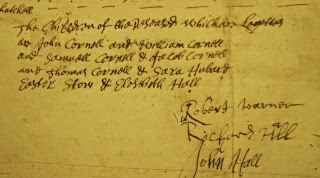 The Children of the deceased which are
are John Cornell and William Cornell
and Samuell Cornell & Jacob Cornell
and Thomas Cornell & Sara Hubard
Easter Stow & Elesibeth Hall
Robert Warner
Richard Hill
John Hall